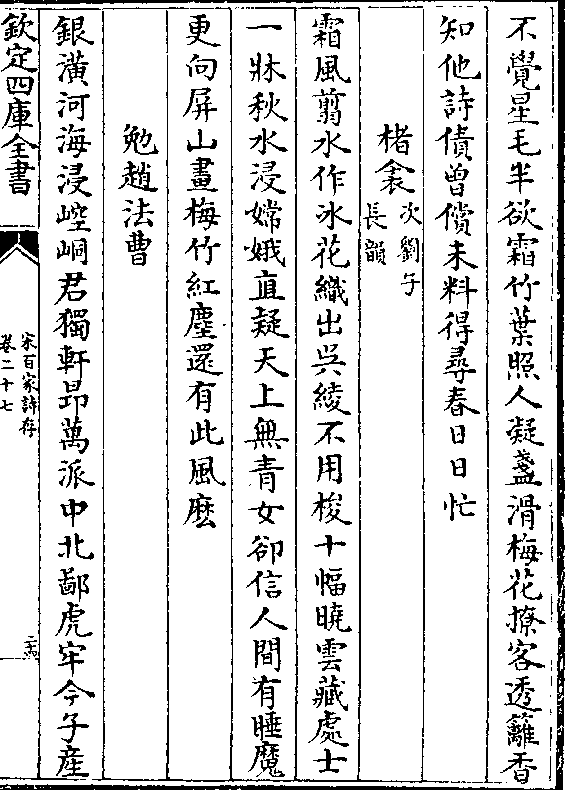 不覺星毛半欲霜竹葉照人凝盞滑梅花撩客透籬香
知他詩債曾償未料得尋春日日忙
楮衾次劉子長韻
霜風翦水作冰花織出吳綾不用梭十幅曉雲藏處士
一牀秋水浸嫦娥直疑天上無青女卻信人間有睡魔
更向屏山畫梅竹紅塵還有此風麽
勉趙法曹
銀潢河海浸崆峒君獨軒昂萬派中北鄙虎牢今子產
欽定四庫全書
宋百家詩存
卷二十七